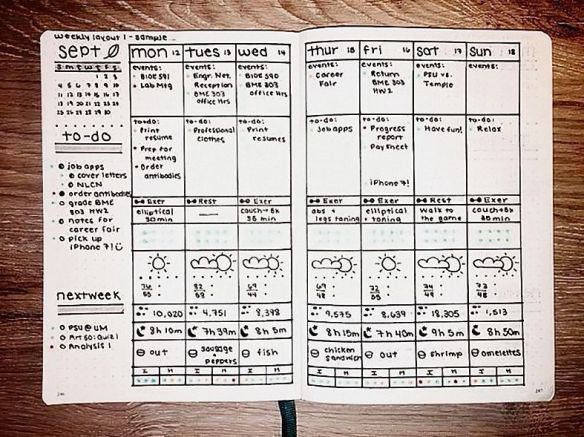 weekly layout 1 - sample
sept
S M T W T F S
1 2 3
4 5 6 7 8 9 10
11 12 13 14 15 16 17
18 19 20 21 22 23 24
25 26 27 28 29 30
to-do
job apps
cover letters
NLCN
order antibodies
grade BME
303 HW2
notes for
career fair
pick up
iPhone 7!
next week
PSU @ UM
Art 50: Quiz 1
Analysis 1
mon 12
events:
BIOE 591
Lab Mtg
to-do:
Print
resume
Prep for
meeting
Order
antibodies
Exer
elliptical
30 min
76
55
10,020
8h 10m
out
I M
tues 13
events:
Engr. Net.
Reception
BME 303
office Hrs
to-do:
Professional
clothes
Rest
82
58
4,751
7h 39m
sausage
+
peppers
I M
wed 14
events:
BIOE 590
BME 303
office Hrs
to-do:
Print
resumes
Exer
couch→8k
35 min
69
44
8,398
8h 5m
fish
I M
thur 15
events:
Career
Fair
to-do:
Job apps
Exer
abs +
legs toning
69
48
9,575
8h 15m
chicken
sandwich
I M
fri 16
events:
Return
BME 303
HW2
to-do:
Progress
report
Pay sheet
iPhone 7!
Exer
elliptical
+ toning
8,639
7h 40m
out
I M
sat 17
events:
PSU vs.
Temple
to-do:
Have fun!
Rest
walk to
the game
74
48
18,305
9h 5m
shrimp
I M
sun 18
events:
to-do:
Relax
Exer
couch→8k
73
48
1,513
8h 50m
omelettes
I M